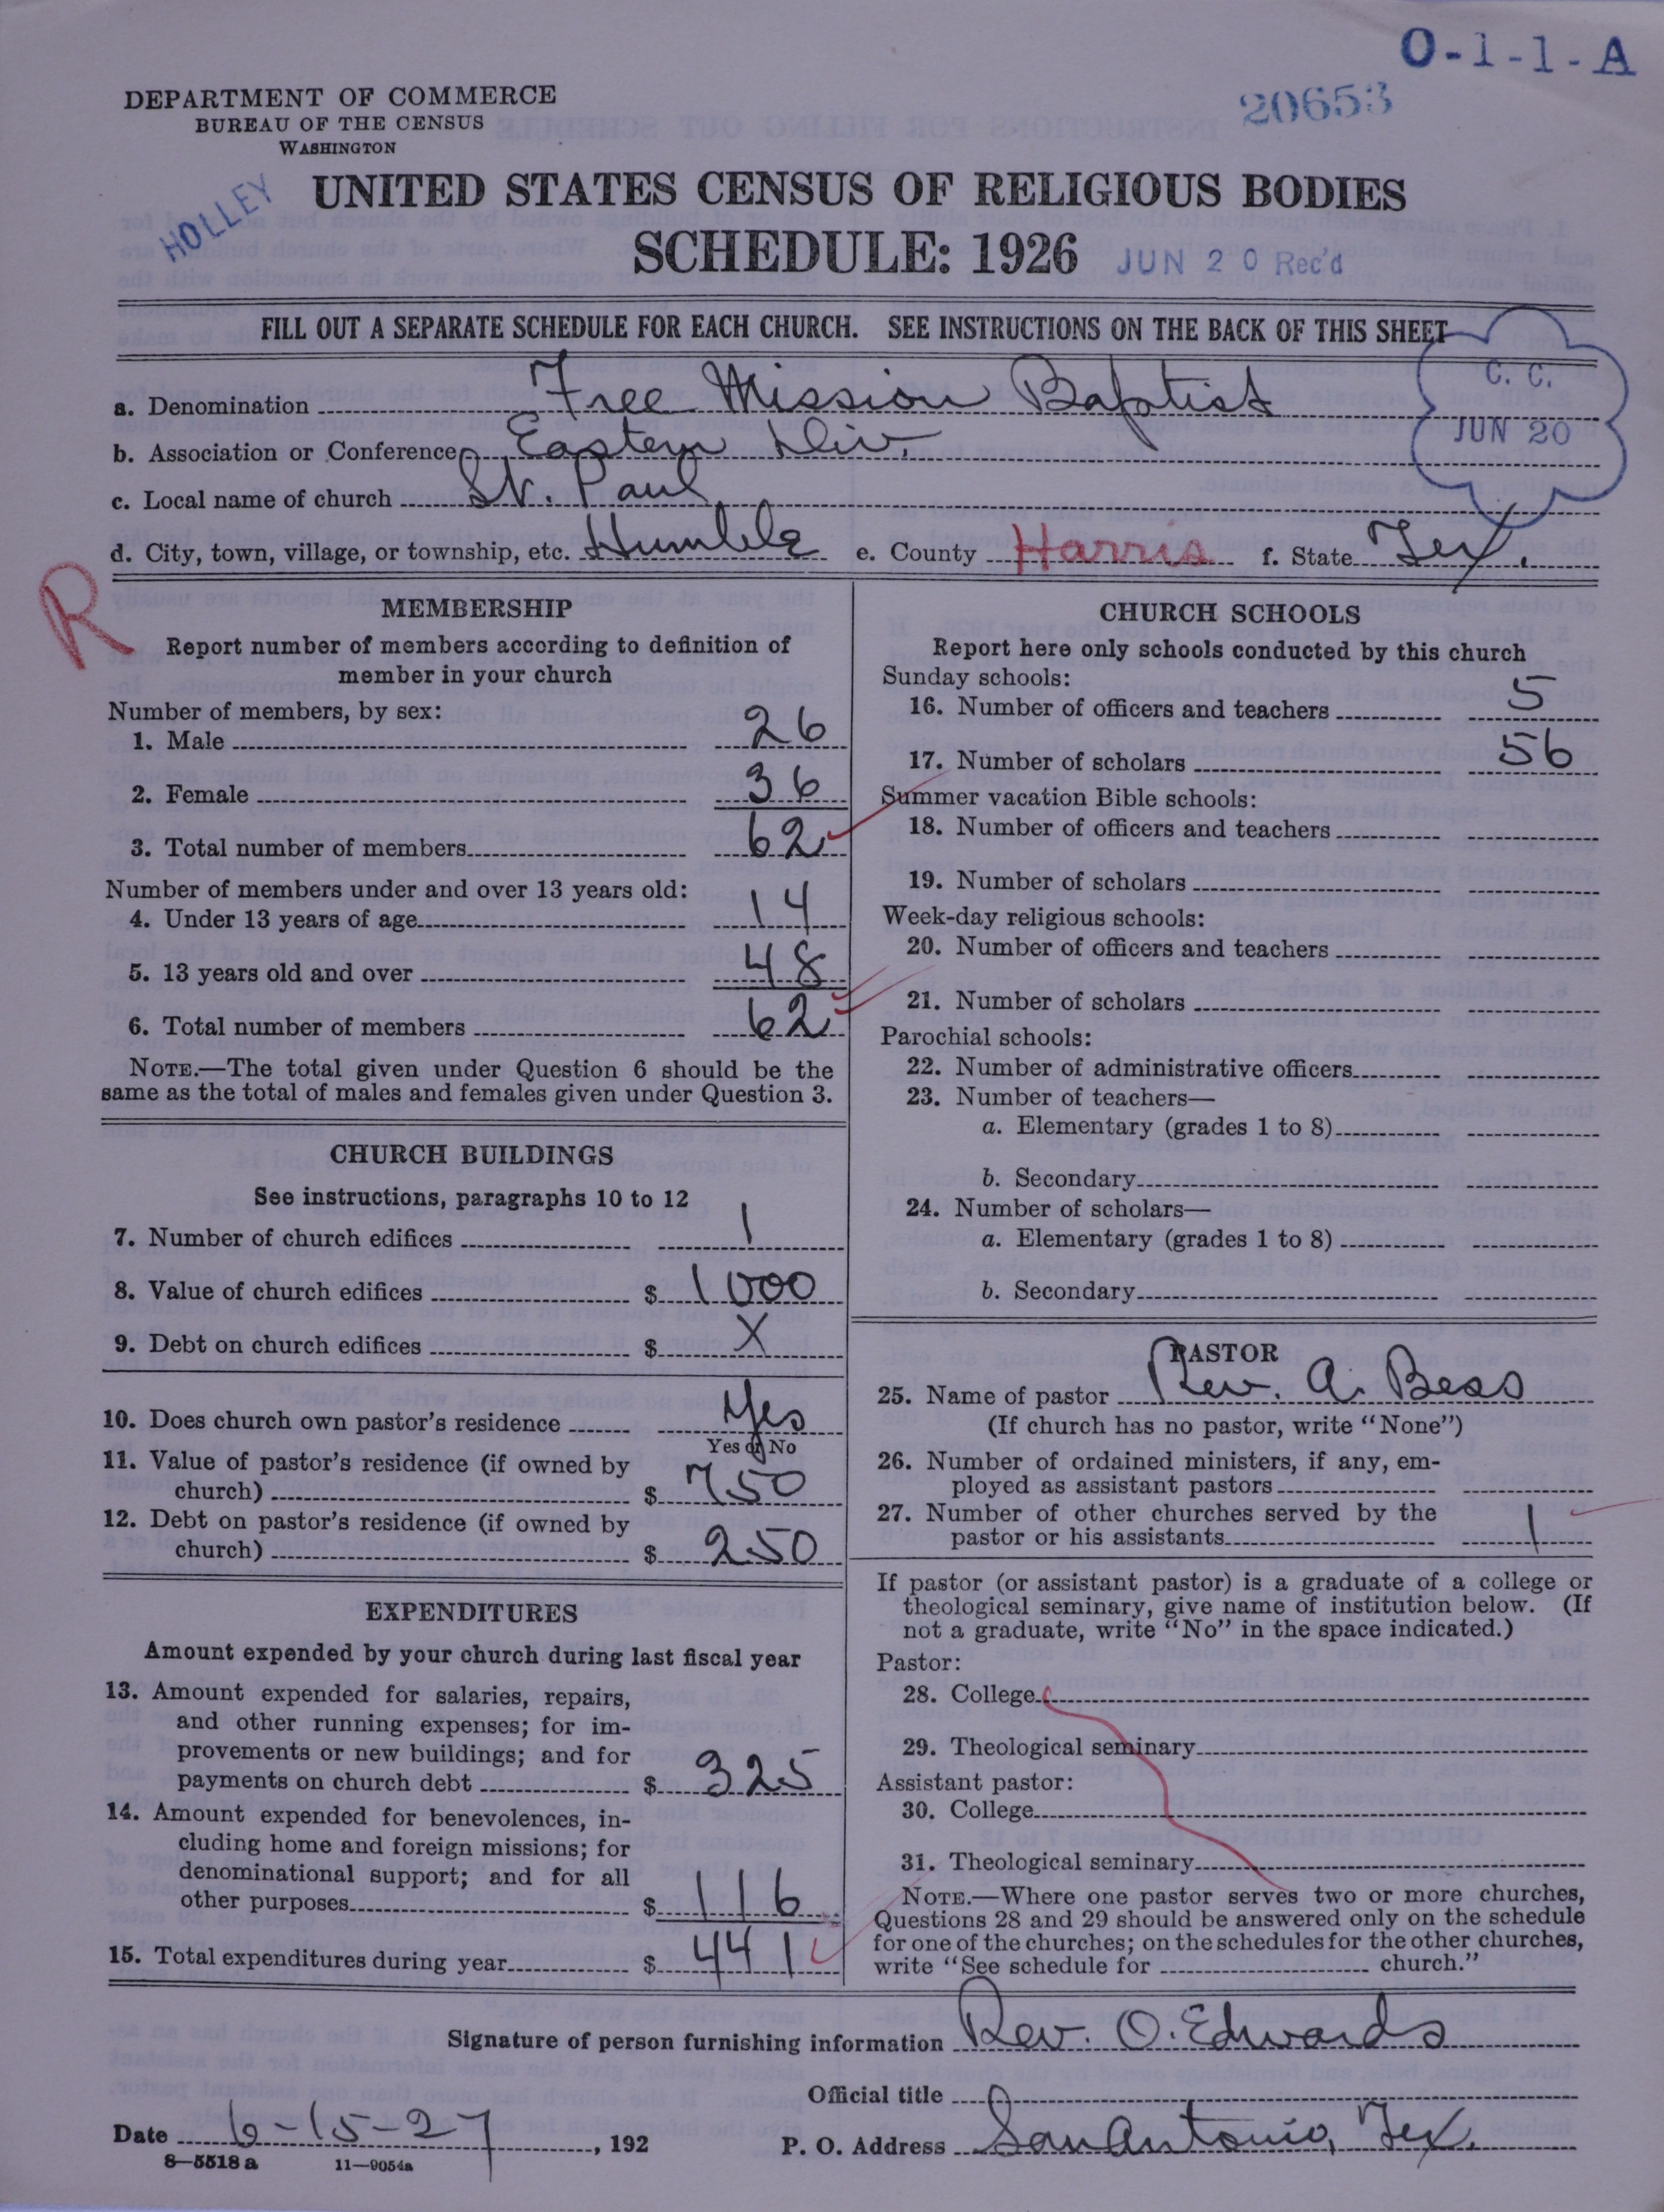 O-1-1-A
20653
DEPARTMENT OF COMMERCE
BUREAU OF THE CENSUS
WASHINGTON
HOLLEY
UNITED STATES CENSUS OF RELIGIOUS BODIES
SCHEDULE: 1926 JUN 20 Rec'd
FILL OUT A SEPARATE SCHEDULE FOR EACH CHURCH. SEE INSTRUCTIONS ON THE BACK OF THIS SHEET
C. C.
JUN 20
a. Denomination Free Mission Baptist
b. Association or Conference Eastern Div.
c. Local name of church St. Paul
d. City, town, village, or township, etc. Humble e. County Harris f. State Tex.
R
MEMBERSHIP
Report number of members according to definition of
member in your church
Number of members, by sex:
1. Male 26
2. Female 36
3. Total number of members 62
Number of members under and over 13 years old:
4. Under 13 years of age 14
5. 13 years old and over 48
6. Total number of members 62
NOTE.—The total given under Question 6 should be the
same as the total of males and females given under Question 3.
CHURCH BUILDINGS
See instructions, paragraphs 10 to 12
7. Number of church edifices 1
8. Value of church edifices $ 1000
9. Debt on church edifices $ X
10. Does church own pastor's residence Yes
Yes or No
11. Value of pastor's residence (if owned by
church) $ 750
12. Debt on pastor's residence (if owned by
church) $ 250
EXPENDITURES
Amount expended by your church during last fiscal year
13. Amount expended for salaries, repairs,
and other running expenses; for im-
provements or new buildings; and for
payments on church debt $ 325
14. Amount expended for benevolences, in-
cluding home and foreign missions; for
denominational support; and for all
other purposes $ 116
15. Total expenditures during year $ 441
CHURCH SCHOOLS
Report here only schools conducted by this church
Sunday schools:
16. Number of officers and teachers 5
17. Number of scholars 56
Summer vacation Bible schools:
18. Number of officers and teachers
19. Number of scholars
Week-day religious schools:
20. Number of officers and teachers
21. Number of scholars
Parochial schools:
22. Number of administrative officers
23. Number of teachers—
a. Elementary (grades 1 to 8)
b. Secondary
24. Number of scholars—
a. Elementary (grades 1 to 8)
b. Secondary
PASTOR
25. Name of pastor Rev. A. Bess
(If church has no pastor, write "None")
26. Number of ordained ministers, if any, em-
ployed as assistant pastors
27. Number of other churches served by the
pastor or his assistants 1
If pastor (or assistant pastor) is a graduate of a college or
theological seminary, give name of institution below. (If
not a graduate, write "No" in the space indicated.)
Pastor:
28. College
29. Theological seminary
Assistant pastor:
30. College
31. Theological seminary
NOTE.—Where one pastor serves two or more churches,
Questions 28 and 29 should be answered only on the schedule
for one of the churches; on the schedules for the other churches,
write "See schedule for church."
Signature of person furnishing information Rev. O. Edwards
Official title
Date 6-15-27, 192 P. O. Address San Antonio, Tex.
8—5518 a 11—9054a